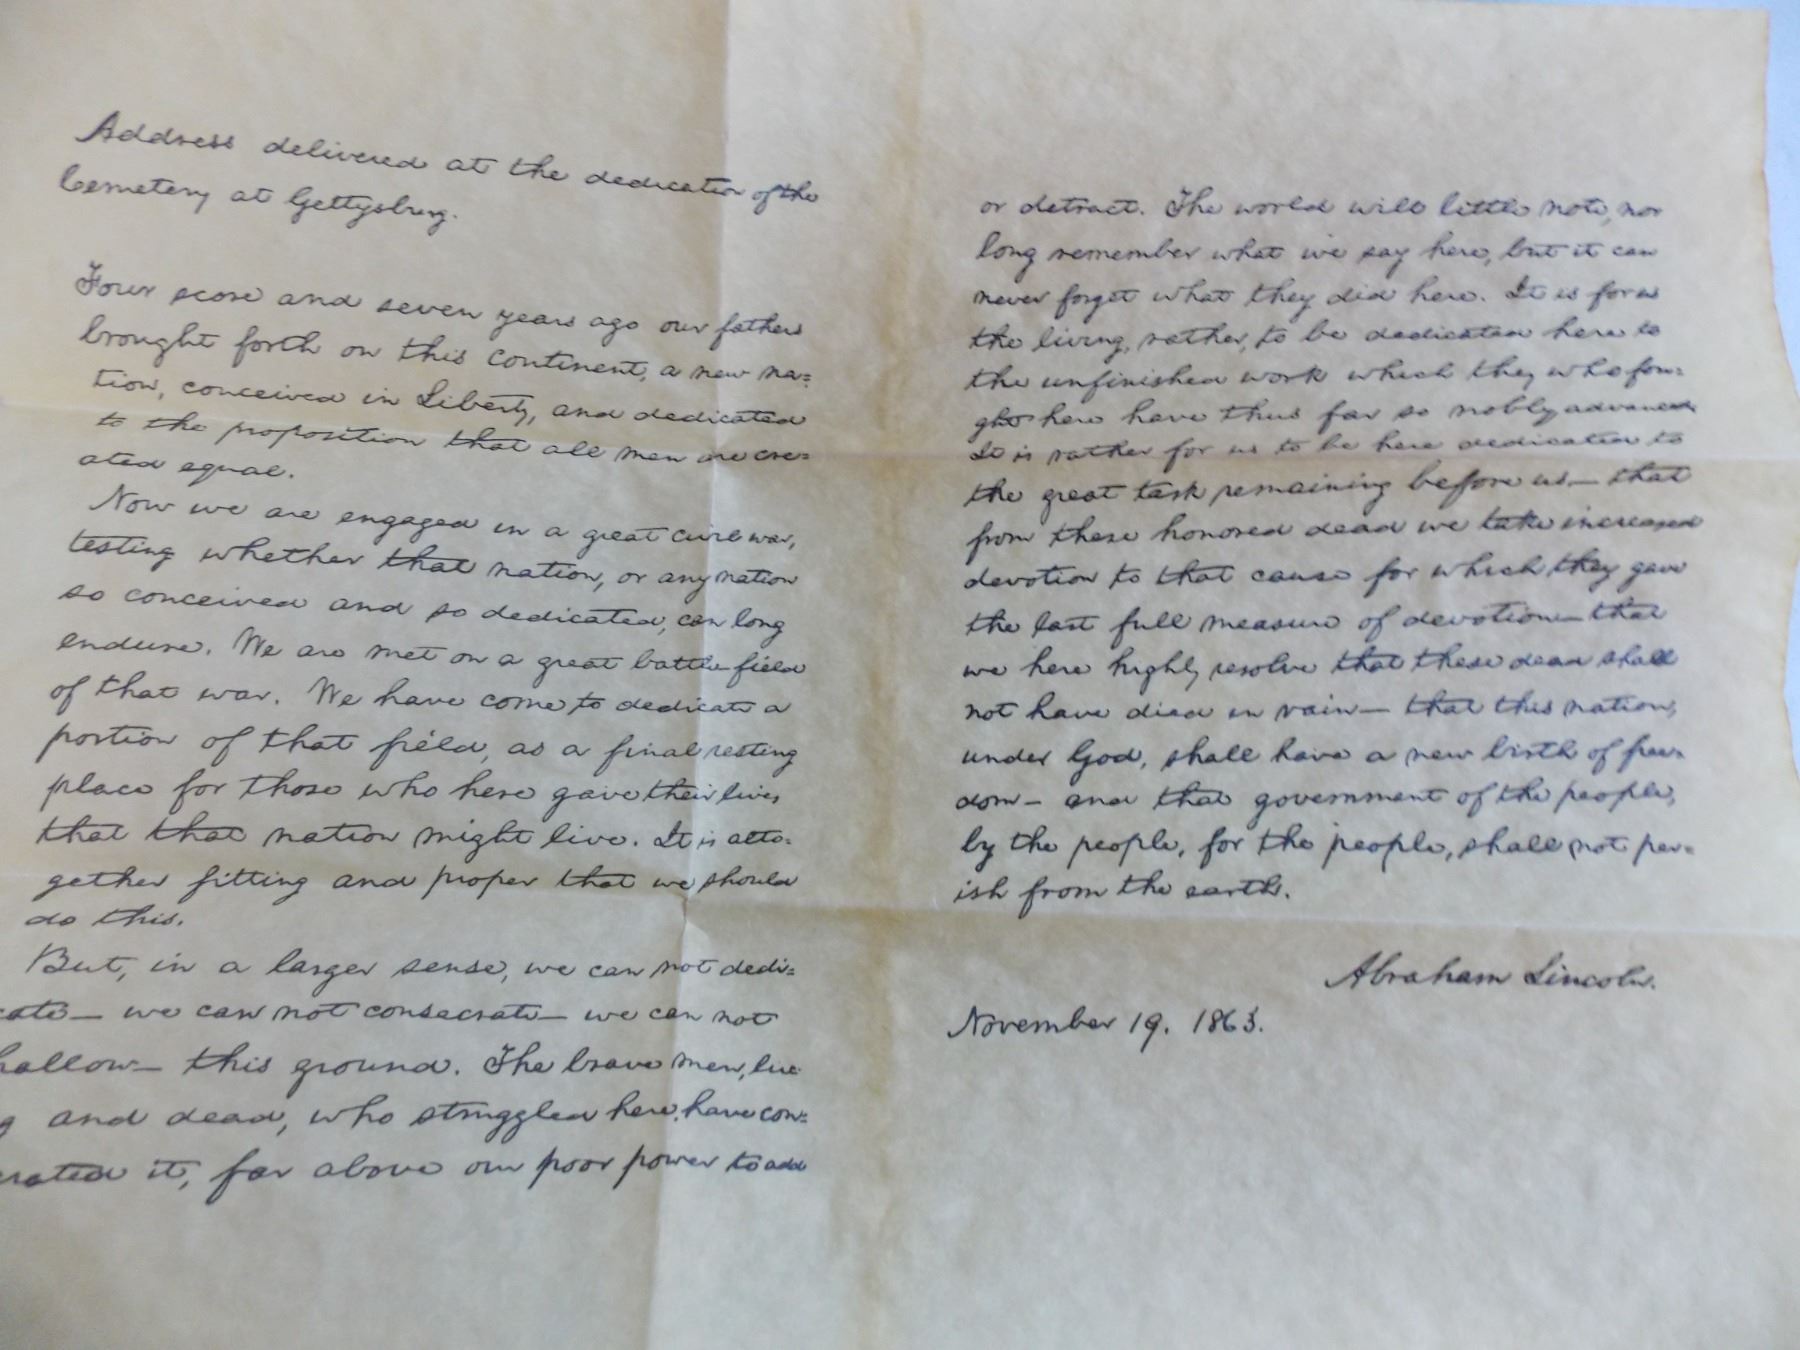 Address delivered at the dedication of the
Cemetery at Gettysburg.
Four score and seven years ago our fathers
brought forth on this continent, a new na=
tion, conceived in Liberty, and dedicated
to the proposition that all men are cre=
ated equal.
Now we are engaged in a great civil war,
testing whether that nation, or any nation
so conceived and so dedicated, can long
endure. We are met on a great battle-field
of that war. We have come to dedicate a
portion of that field, as a final resting
place for those who here gave their lives
that that nation might live. It is alto=
gether fitting and proper that we should
do this.
But, in a larger sense, we can not dedi=
cate— we can not consecrate— we can not
hallow— this ground. The brave men, liv
g and dead, who struggled here, have con=
crated it, far above our poor power to add
or detract. The world will little note, nor
long remember what we say here, but it can
never forget what they did here. It is for us
the living, rather, to be dedicated here to
the unfinished work which they who fou=
ght here have thus far so nobly advanced.
It is rather for us to be here dedicated to
the great task remaining before us— that
from these honored dead we take increased
devotion to that cause for which they gave
the last full measure of devotion— that
we here highly resolve that these dead shall
not have died in vain— that this nation,
under God, shall have a new birth of free=
dom— and that government of the people,
by the people, for the people, shall not per=
ish from the earth.
Abraham Lincoln.
November 19. 1863.